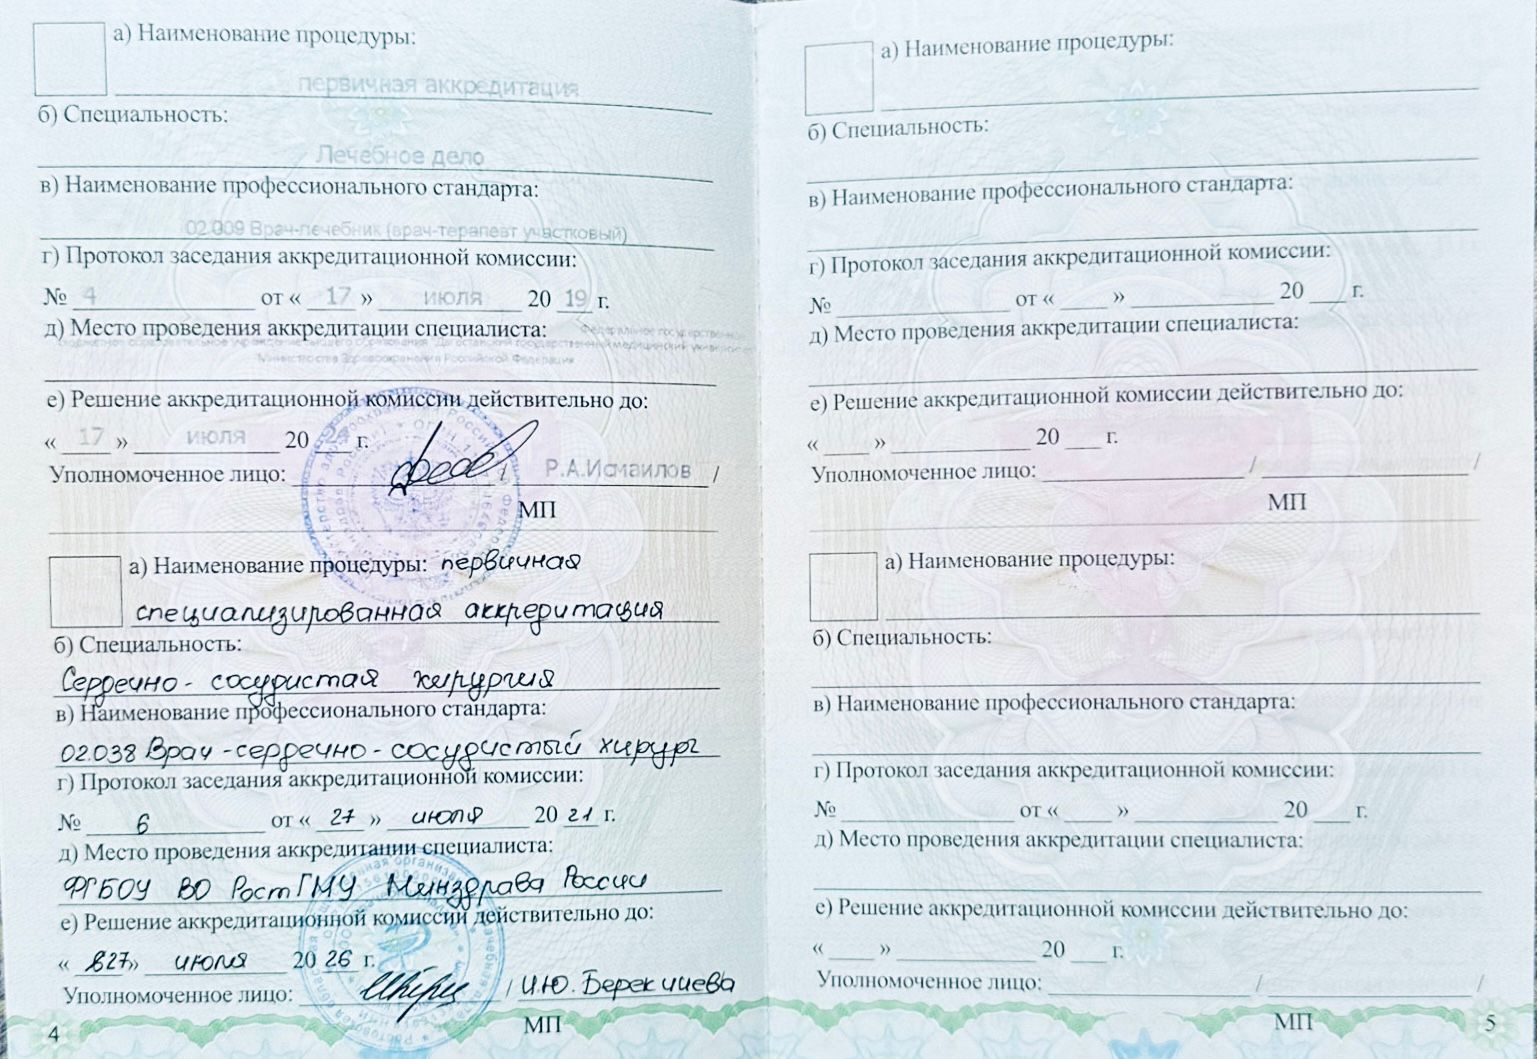 а) Наименование процедуры:
первичная аккредитация
б) Специальность:
Лечебное дело
в) Наименование профессионального стандарта:
02.009 Врач-лечебник (врач-терапевт участковый)
г) Протокол заседания аккредитационной комиссии:
№ 4 от « 17 » июля 20 19 г.
д) Место проведения аккредитации специалиста: Федеральное государственное
бюджетное образовательное учреждение высшего образования "Дагестанский государственный медицинский университет"
Министерства Здравоохранения Российской Федерации
е) Решение аккредитационной комиссии действительно до:
« 17 » июля 20 24 г.
Уполномоченное лицо: / Р.А.Исмаилов /
МП
а) Наименование процедуры: первичная
специализированная аккредитация
б) Специальность:
Сердечно - сосудистая хирургия
в) Наименование профессионального стандарта:
02.038 Врач - сердечно - сосудистый хирург
г) Протокол заседания аккредитационной комиссии:
№ 6 от « 27 » июля 20 21 г.
д) Место проведения аккредитации специалиста:
ФГБОУ ВО РостГМУ Минздрава России
е) Решение аккредитационной комиссии действительно до:
« 27 » июля 20 26 г.
Уполномоченное лицо: / И.Ю. Берекчиева
МП
4
а) Наименование процедуры:
б) Специальность:
в) Наименование профессионального стандарта:
г) Протокол заседания аккредитационной комиссии:
№ от « » 20 г.
д) Место проведения аккредитации специалиста:
е) Решение аккредитационной комиссии действительно до:
« » 20 г.
Уполномоченное лицо: / /
МП
а) Наименование процедуры:
б) Специальность:
в) Наименование профессионального стандарта:
г) Протокол заседания аккредитационной комиссии:
№ от « » 20 г.
д) Место проведения аккредитации специалиста:
е) Решение аккредитационной комиссии действительно до:
« » 20 г.
Уполномоченное лицо: / /
МП
5